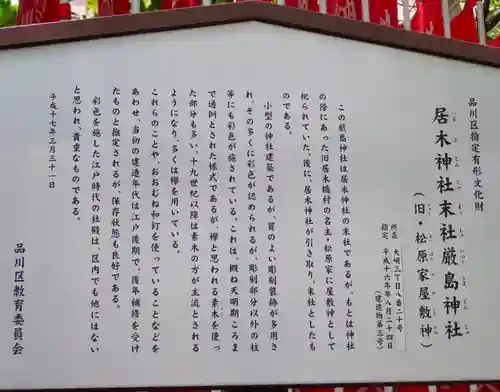 品川区指定有形文化財
居木神社末社厳島神社
いるぎじんじゃまっしゃいつくしまじんじゃ
(旧・松原家屋敷神)
所在 大崎三丁目八番二十号
指定 平成十六年八月二十四日
(建造物第三号)
この厳島神社は居木神社の末社であるが、もとは神社
の傍にあった旧居木橋村の名主・松原家に屋敷神として
祀られていた。後に、居木神社が引き取り、末社としたも
のである。
小型の神社建築であるが、質のよい彫刻装飾が多用さ
れ、その多くに彩色が認められるが、彫刻部分以外の柱
等にも彩色が施されている。これは、概ね天明期ころま
で通例とされた様式であるが、欅と思われる素木を使っ
た部分も多い。十九世紀以降は素木の方が主流とされる
ようになり、多くは欅を用いている。
これらのことや、おおむね和釘を使っていることなどを
あわせ、当初の建造年代は江戸後期で、後年補修を受け
たものと推定されるが、保存状態も良好である。
彩色を施した江戸時代の社殿は、区内でも他にはない
と思われ、貴重なものである。
平成十七年三月三十一日
品川区教育委員会